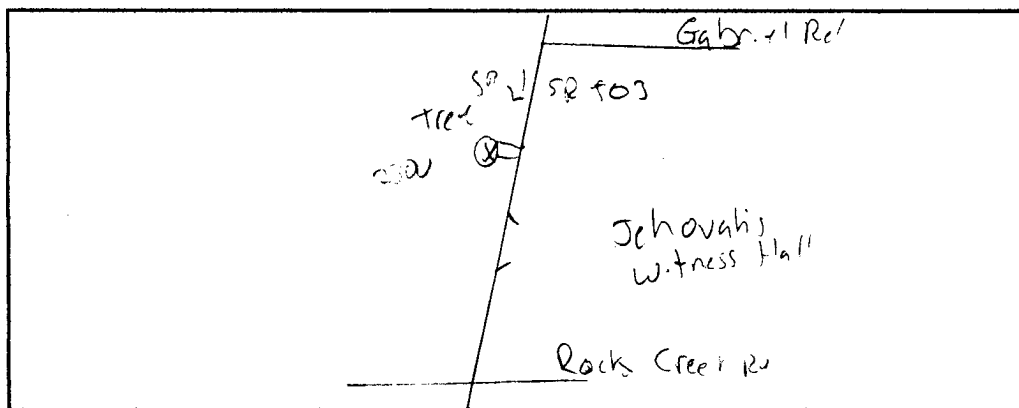 Gabriel Rd
SR 403
tree
Jehovah's
Witness Hall
Rock Creek Rd